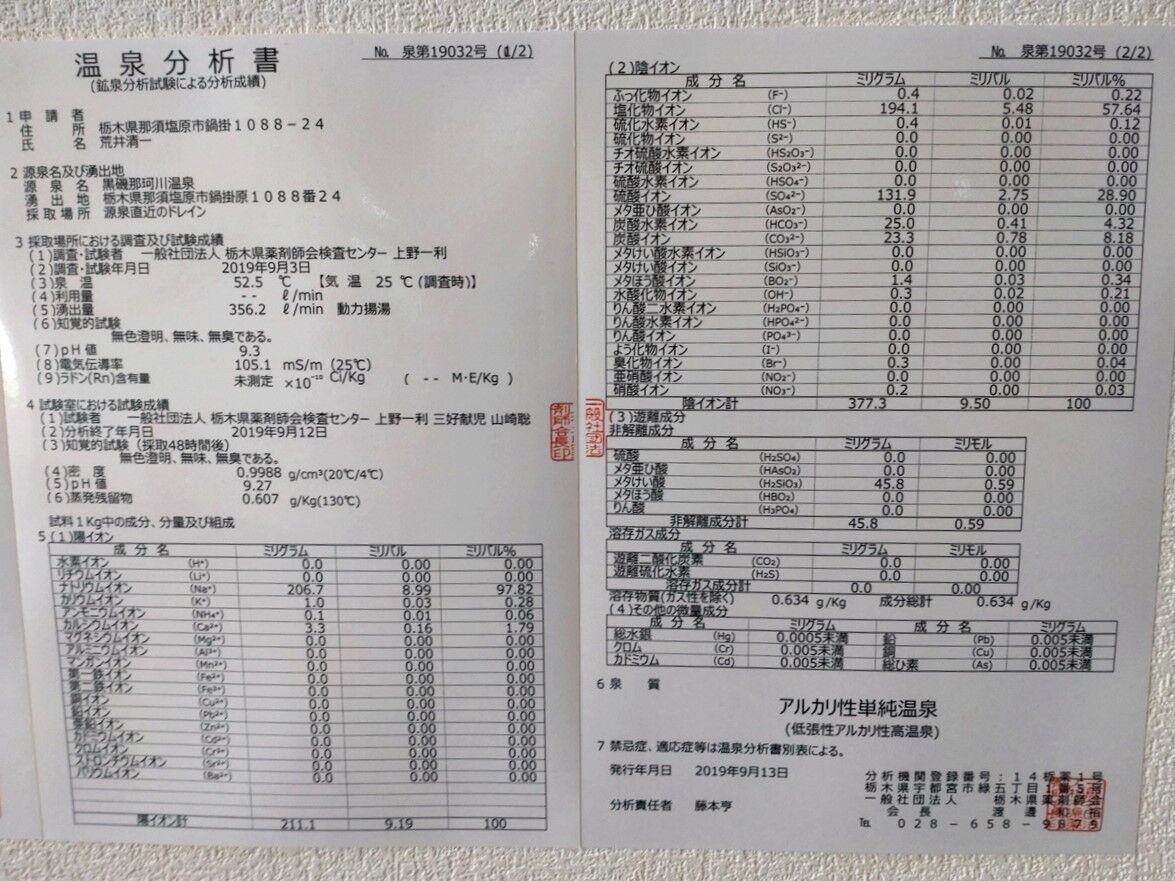 温泉分析書
(鉱泉分析試験による分析成績)
No. 泉第19032号 (1/2)
1 申請者
住所 栃木県那須塩原市鍋掛1088-24
氏名 荒井清一
2 源泉名及び湧出地
源泉名 黒磯那珂川温泉
湧出地 栃木県那須塩原市鍋掛原1088番24
採取場所 源泉直近のドレイン
3 採取場所における調査及び試験成績
(1)調査・試験者 一般社団法人 栃木県薬剤師会検査センター 上野一利
(2)調査・試験年月日 2019年9月3日
(3)泉温 52.5 ℃ 【気温 25 ℃(調査時)】
(4)利用量 -- ℓ/min
(5)湧出量 356.2 ℓ/min 動力揚湯
(6)知覚的試験
無色澄明、無味、無臭である。
(7)pH値 9.3
(8)電気伝導率 105.1 mS/m (25℃)
(9)ラドン(Rn)含有量 未測定 ×10⁻¹⁰ Ci/Kg ( -- M・E/Kg )
4 試験室における試験成績
(1)試験者 一般社団法人 栃木県薬剤師会検査センター 上野一利 三好献児 山崎聡
(2)分析終了年月日 2019年9月12日
(3)知覚的試験 (採取48時間後)
無色澄明、無味、無臭である。
(4)密度 0.9988 g/cm³(20℃/4℃)
(5)pH値 9.27
(6)蒸発残留物 0.607 g/Kg(130℃)
試料1Kg中の成分、分量及び組成
5 (1)陽イオン
成分名 ミリグラム ミリバル ミリバル%
水素イオン (H⁺) 0.0 0.00 0.00
リチウムイオン (Li⁺) 0.0 0.00 0.00
ナトリウムイオン (Na⁺) 206.7 8.99 97.82
カリウムイオン (K⁺) 1.0 0.03 0.28
アンモニウムイオン (NH₄⁺) 0.1 0.01 0.06
カルシウムイオン (Ca²⁺) 3.3 0.16 1.79
マグネシウムイオン (Mg²⁺) 0.0 0.00 0.00
アルミニウムイオン (Al³⁺) 0.0 0.00 0.00
マンガンイオン (Mn²⁺) 0.0 0.00 0.00
第一鉄イオン (Fe²⁺) 0.0 0.00 0.00
第二鉄イオン (Fe³⁺) 0.0 0.00 0.00
銅イオン (Cu²⁺) 0.0 0.00 0.00
鉛イオン (Pb²⁺) 0.0 0.00 0.00
亜鉛イオン (Zn²⁺) 0.0 0.00 0.00
カドミウムイオン (Cd²⁺) 0.0 0.00 0.00
クロムイオン (Cr³⁺) 0.0 0.00 0.00
ストロンチウムイオン (Sr²⁺) 0.0 0.00 0.00
バリウムイオン (Ba²⁺) 0.0 0.00 0.00
陽イオン計 211.1 9.19 100
No. 泉第19032号 (2/2)
(2)陰イオン
成分名 ミリグラム ミリバル ミリバル%
ふっ化物イオン (F⁻) 0.4 0.02 0.22
塩化物イオン (Cl⁻) 194.1 5.48 57.64
硫化水素イオン (HS⁻) 0.4 0.01 0.12
硫化物イオン (S²⁻) 0.0 0.00 0.00
チオ硫酸水素イオン (HS₂O₃⁻) 0.0 0.00 0.00
チオ硫酸イオン (S₂O₃²⁻) 0.0 0.00 0.00
硫酸水素イオン (HSO₄⁻) 0.0 0.00 0.00
硫酸イオン (SO₄²⁻) 131.9 2.75 28.90
メタ亜ひ酸イオン (AsO₂⁻) 0.0 0.00 0.00
炭酸水素イオン (HCO₃⁻) 25.0 0.41 4.32
炭酸イオン (CO₃²⁻) 23.3 0.78 8.18
メタけい酸水素イオン (HSiO₃⁻) 0.0 0.00 0.00
メタけい酸イオン (SiO₃⁻) 0.0 0.00 0.00
メタほう酸イオン (BO₂⁻) 1.4 0.03 0.34
水酸化物イオン (OH⁻) 0.3 0.02 0.21
りん酸二水素イオン (H₂PO₄⁻) 0.0 0.00 0.00
りん酸水素イオン (HPO₄²⁻) 0.0 0.00 0.00
りん酸イオン (PO₄³⁻) 0.0 0.00 0.00
よう化物イオン (I⁻) 0.0 0.00 0.00
臭化物イオン (Br⁻) 0.3 0.00 0.04
亜硝酸イオン (NO₂⁻) 0.0 0.00 0.00
硝酸イオン (NO₃⁻) 0.2 0.00 0.03
陰イオン計 377.3 9.50 100
(3)遊離成分
非解離成分
成分名 ミリグラム ミリモル
硫酸 (H₂SO₄) 0.0 0.00
メタ亜ひ酸 (HAsO₂) 0.0 0.00
メタけい酸 (H₂SiO₃) 45.8 0.59
メタほう酸 (HBO₂) 0.0 0.00
りん酸 (H₃PO₄) 0.0 0.00
非解離成分計 45.8 0.59
溶存ガス成分
成分名 ミリグラム ミリモル
遊離二酸化炭素 (CO₂) 0.0 0.00
遊離硫化水素 (H₂S) 0.0 0.00
溶存ガス成分計 0.0 0.00
溶存物質(ガス性を除く) 0.634 g/Kg 成分総計 0.634 g/Kg
(4)その他の微量成分
成分名 ミリグラム 成分名 ミリグラム
総水銀 (Hg) 0.0005未満 鉛 (Pb) 0.005未満
クロム (Cr) 0.005未満 銅 (Cu) 0.005未満
カドミウム (Cd) 0.005未満 総ひ素 (As) 0.005未満
6 泉質
アルカリ性単純温泉
(低張性アルカリ性高温泉)
7 禁忌症、適応症等は温泉分析書別表による。
発行年月日 2019年9月13日
分析責任者 藤本亨
分析機関登録番号:14栃薬1号
栃木県宇都宮市緑五丁目1番5号
一般社団法人 栃木県薬剤師会
会長 渡邊和裕
℡ 028-658-9879